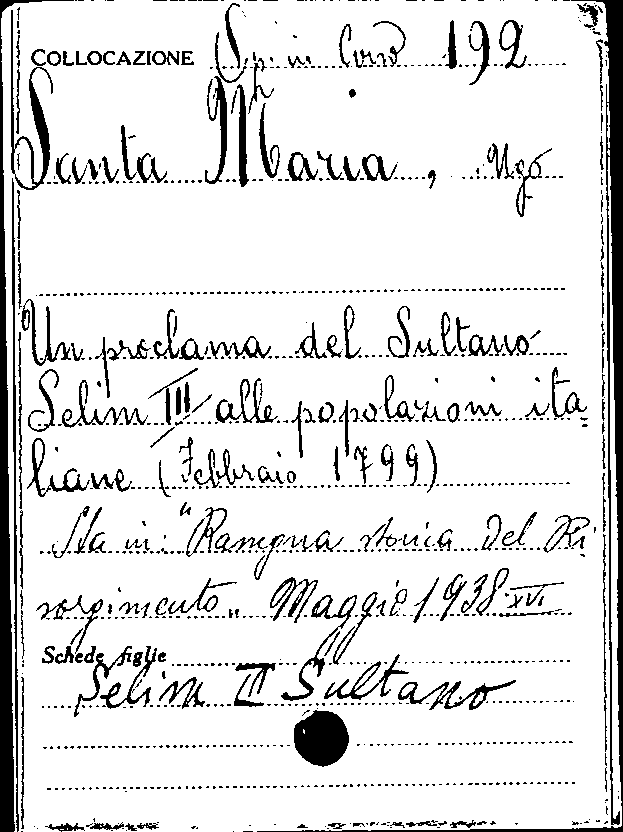 COLLOCAZIONE (Sp. in Corso 192
Santa Maria, Ugo
Un proclama del Sultano
Selim III alle popolazioni ita=
liane (Febbraio 1799)
Sta in: "Rassegna storica del Ri
sorgimento" Maggio 1938 XVI
Schede figlie
Selim III Sultano